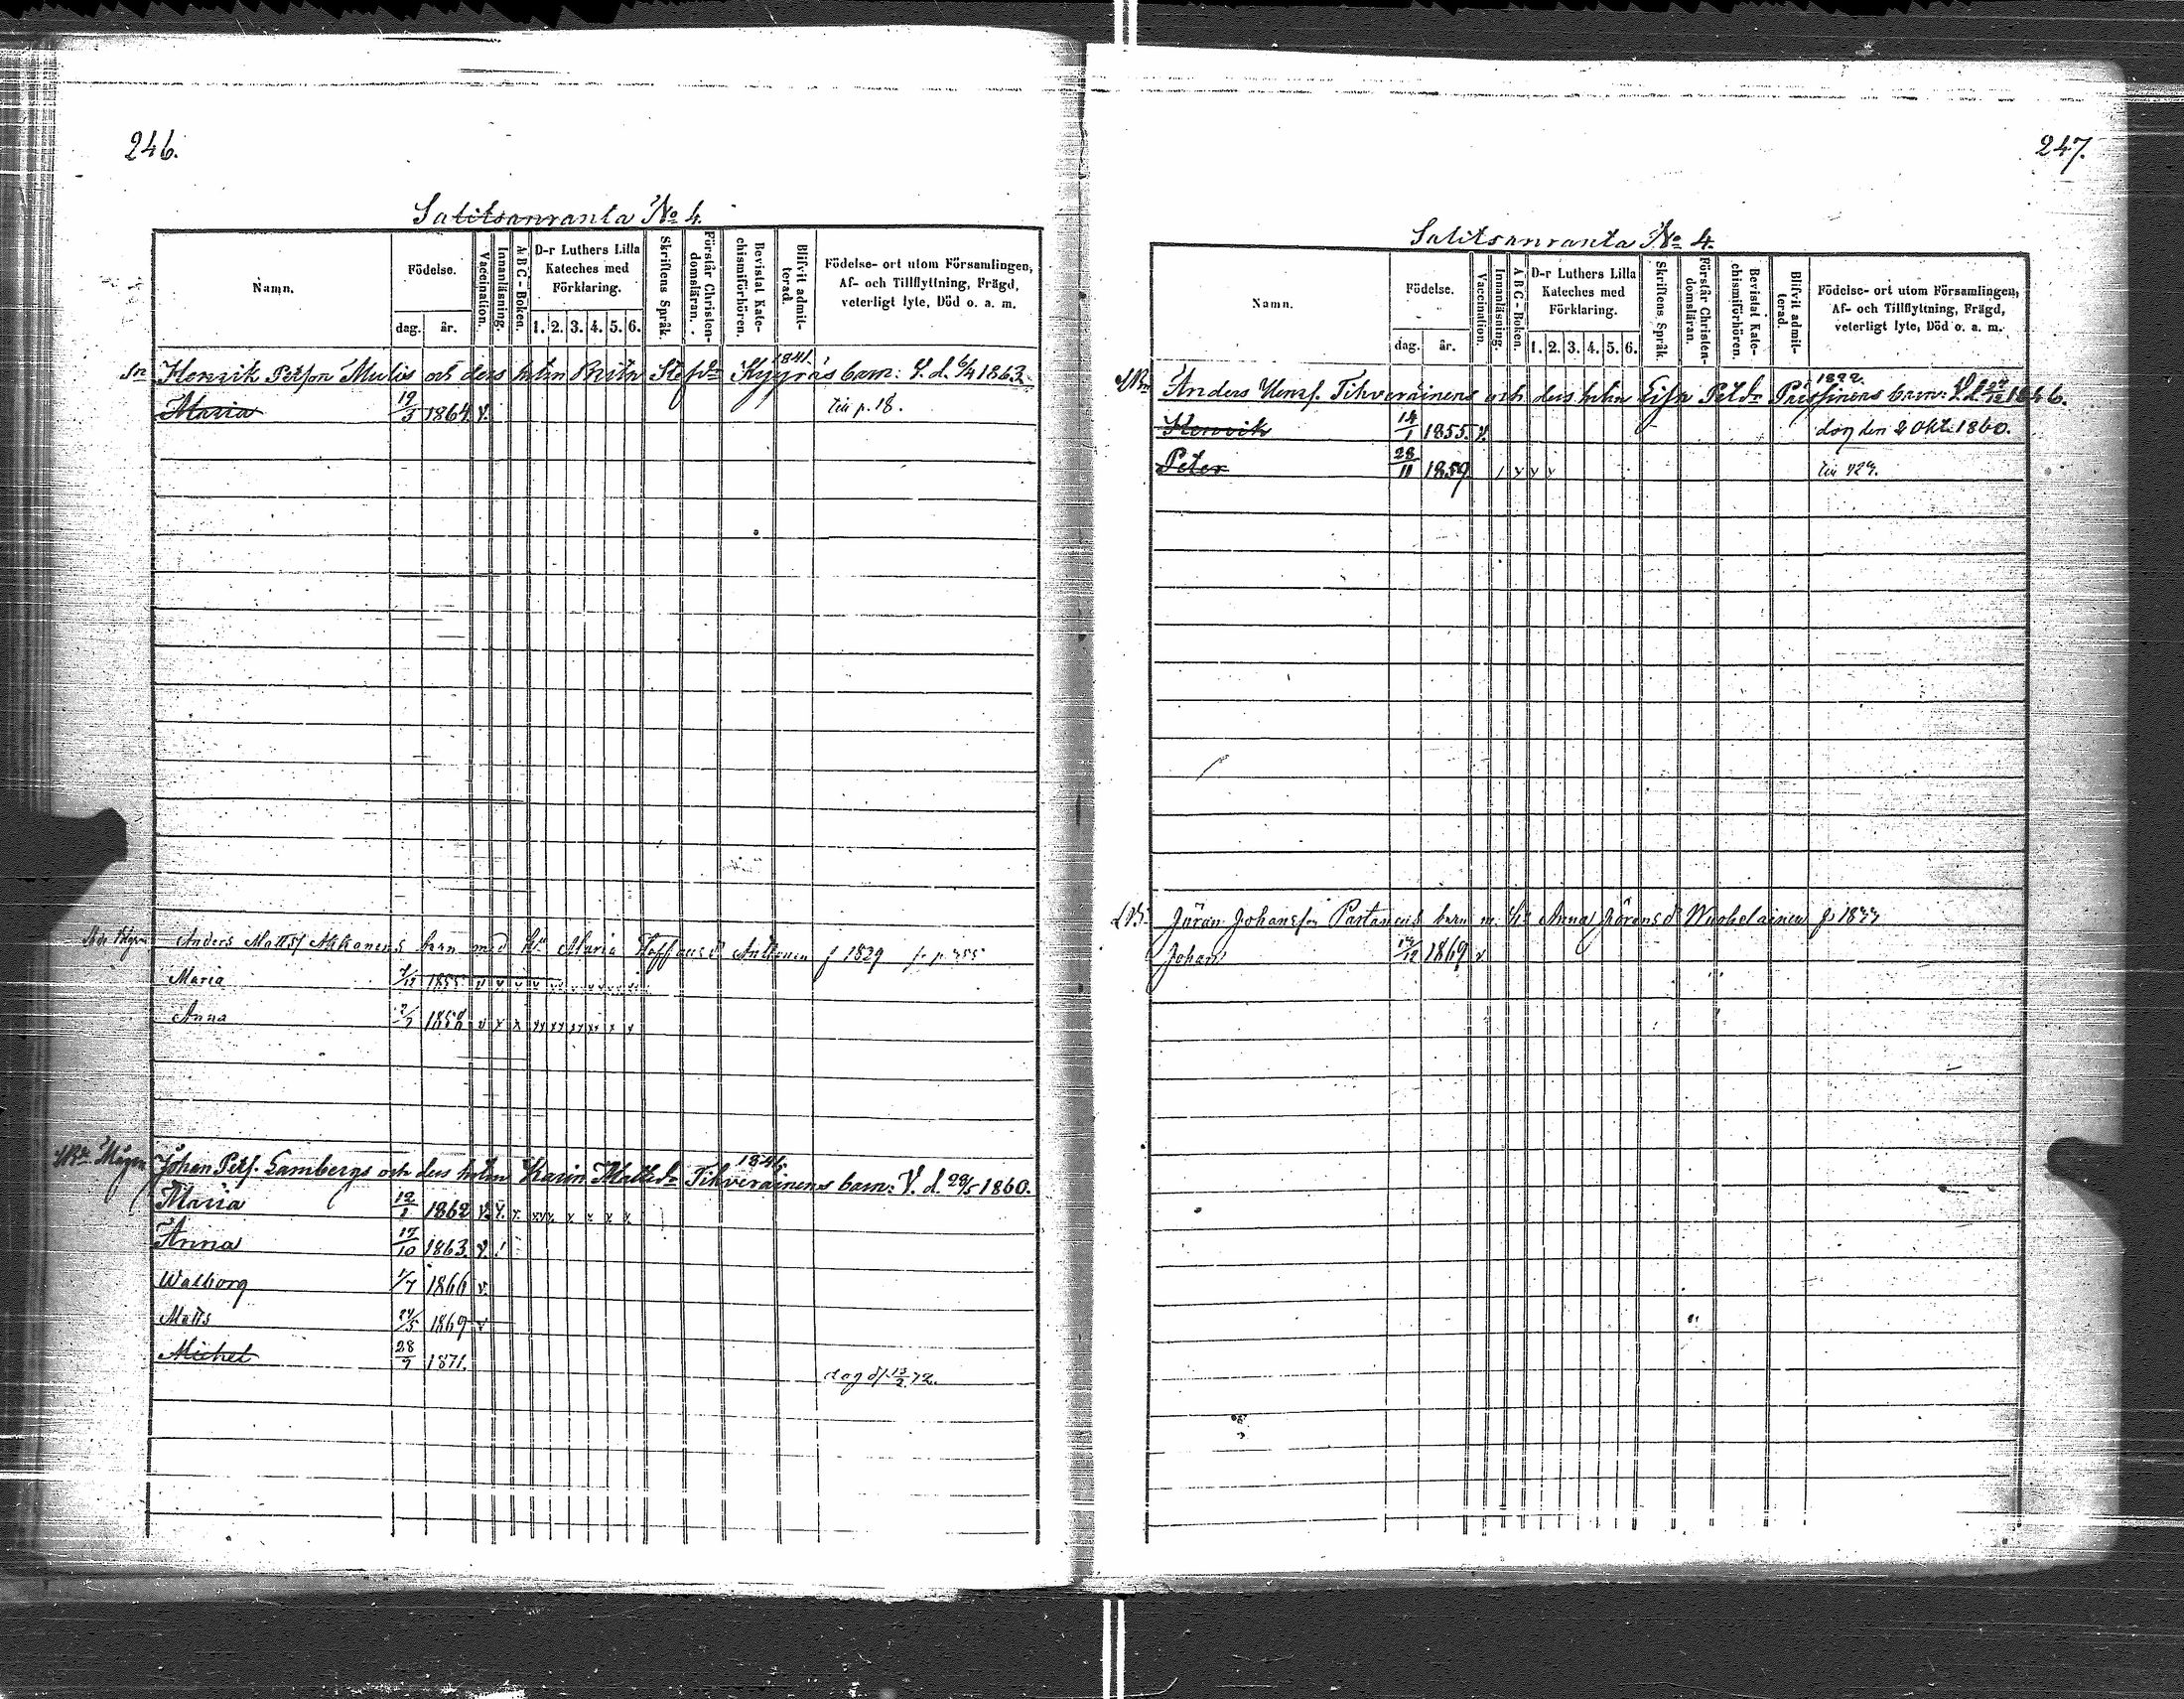 246.
Salitsanranta No 4.
Namn.
Födelse.
dag.
år.
Vaccination.
Innanläsning.
A B C - Boken.
D-r Luthers Lilla
Kateches med
Förklaring.
1. 2. 3. 4. 5. 6.
Skriftens Språk.
Förstår Christen-
domsläran.
Bevistat Kate-
chismiförhören.
Blifvit admit-
terad.
Födelse- ort utom Församlingen,
Af- och Tillflyttning, Frägd,
veterligt lyte, Död o. a. m.
1841.
Henrik Petson Mulos och dess hstru Brita Stefdr Kyyräs barn: V. d. 6/4 1863.
Maria 19/3 1864. v. till p. 18.
Anders Matts Akkanens barn med Maria Anttonen f 1829
Maria 7/12 1855 v v v v
Anna 2/7 1858 v x x xx xx xx xx x x
1841.
Johan Pets. Lambergs och dess hstru Karin Mattsdr Tihveräinens barn: V. d. 29/5 1860.
Maria 12/1 1862 v. x. x. xvx. x x x x
Anna 17/10 1863. v. /
Walborg 1/7 1866 v.
Matts 24/3 1869 v
Michel 28/9 1871. dog d. 13/2 72.
247.
Salitsanranta No 4.
Namn.
Födelse.
dag.
år.
Vaccination.
Innanläsning.
A B C - Boken.
D-r Luthers Lilla
Kateches med
Förklaring.
1. 2. 3. 4. 5. 6.
Skriftens Språk.
Förstår Christen-
domsläran.
Bevistat Kate-
chismiförhören.
Blifvit admit-
terad.
Födelse- ort utom Församlingen,
Af- och Tillflyttning, Frägd,
veterligt lyte, Död o. a. m.
1822.
Anders Henrs. Tihveräinens och dess hstru Lisa Petdr Pussinens barn: V. d. 27/12 1846.
Henrik 14/1 1855. v. dog den 2 Okt. 1860.
Peter 28/11 1859. / v v v till 729.
Göran Johansson Partanens barn m. h:s Anna Göransdr Wuohelainen f 1837
Johan 14/12 1869 v